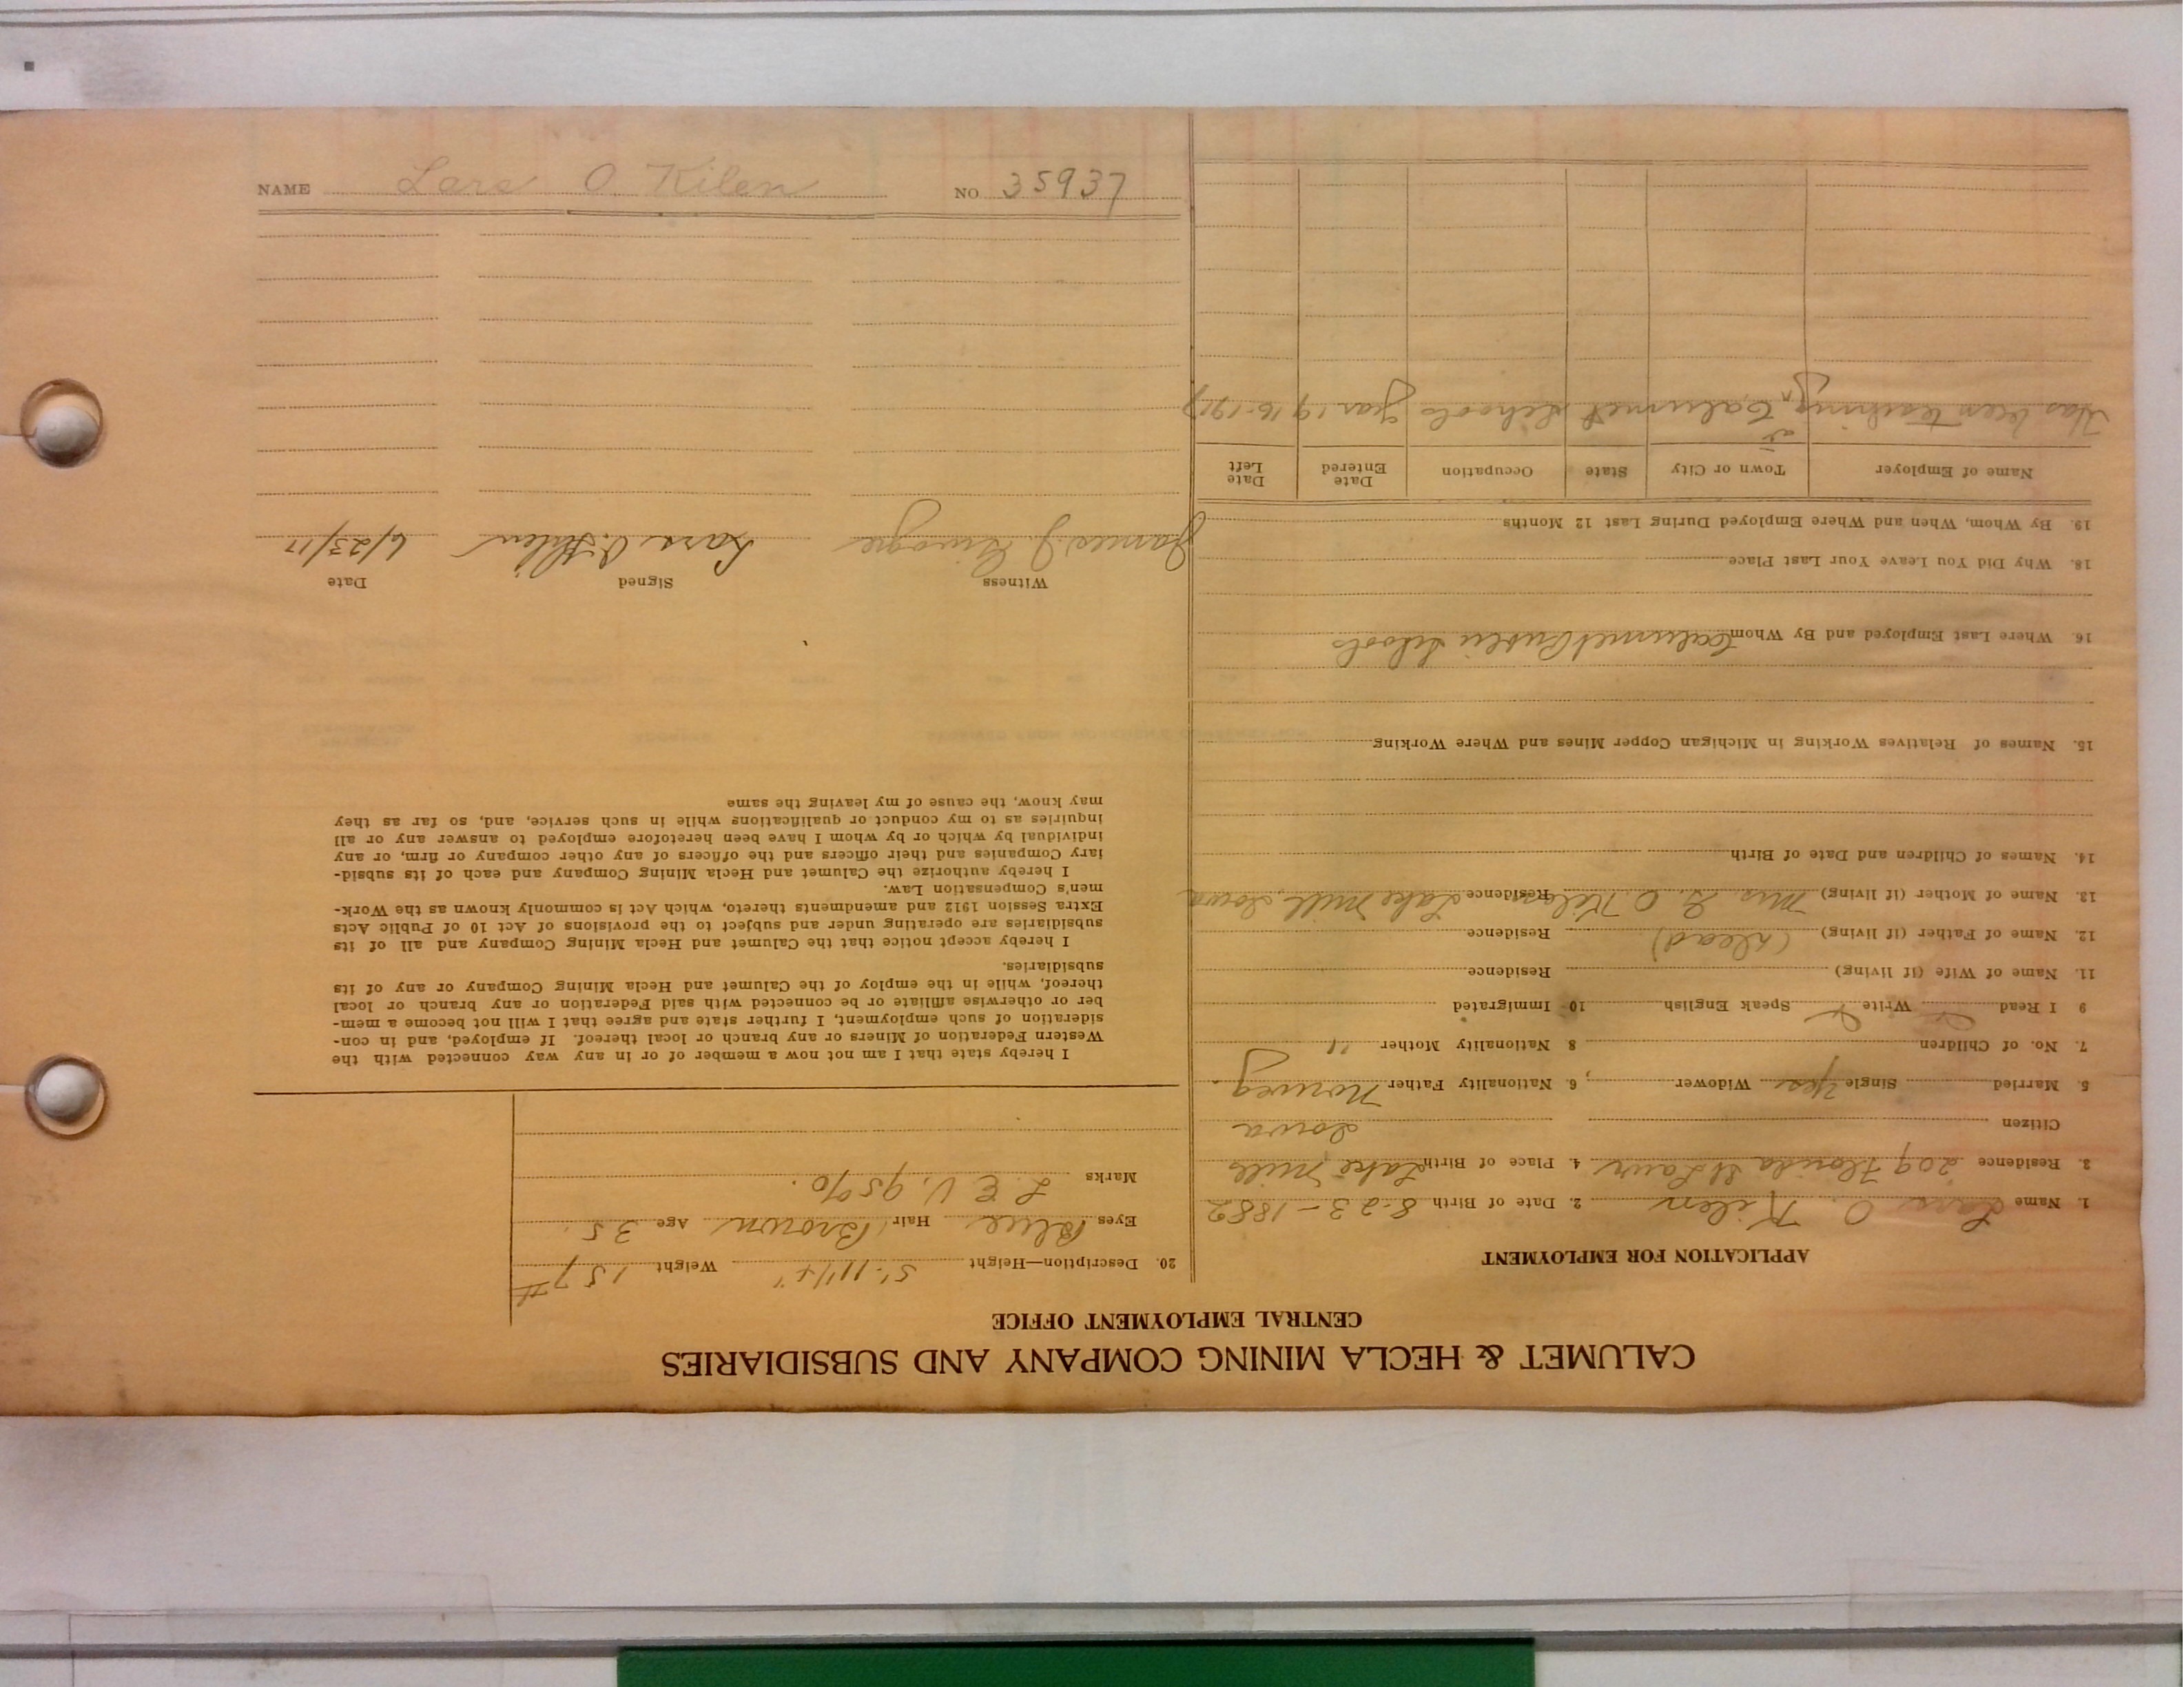 CALUMET & HECLA MINING COMPANY AND SUBSIDIARIES
CENTRAL EMPLOYMENT OFFICE
APPLICATION FOR EMPLOYMENT
1. Name Lars O. Kilen 2. Date of Birth 8-23-1882
3. Residence 209 Florida St Laur 4. Place of Birth Lake Mills
Citizen Iowa
5. Married Single Yes Widower ; 6. Nationality Father Norweg.
7. No. of Children 8 Nationality Mother "
9 I Read Write Speak English 10 Immigrated
11. Name of Wife (if living) Residence
12. Name of Father (if living) (dead) Residence
13. Name of Mother (if living) Mrs. G. O. Kilen Residence Lake Mill, Iowa
14. Names of Children and Date of Birth
15. Names of Relatives Working in Michigan Copper Mines and Where Working
16. Where Last Employed and By Whom Calumet Public Schools
18. Why Did You Leave Your Last Place
19. By Whom, When and Where Employed During Last 12 Months
Name of Employer Town or City State Occupation Date Entered Date Left
Has been teaching at Calumet Schools year 1916-1917
20. Description—Height 5'-11 1/4" Weight 157#
Eyes Blue Hair Brown Age 35
Marks L. E. V. 95%.
I hereby state that I am not now a member of or in any way connected with the
Western Federation of Miners or any branch or local thereof. If employed, and in con-
sideration of such employment, I further state and agree that I will not become a mem-
ber or otherwise affiliate or be connected with said Federation or any branch or local
thereof, while in the employ of the Calumet and Hecla Mining Company or any of its
subsidiaries.
I hereby accept notice that the Calumet and Hecla Mining Company and all of its
subsidiaries are operating under and subject to the provisions of Act 10 of Public Acts
Extra Session 1912 and amendments thereto, which Act is commonly known as the Work-
men's Compensation Law.
I hereby authorize the Calumet and Hecla Mining Company and each of its subsid-
iary Companies and their officers and the officers of any other company or firm, or any
individual by which or by whom I have been heretofore employed to answer any or all
inquiries as to my conduct or qualifications while in such service, and, so far as they
may know, the cause of my leaving the same
Witness Signed Date
James J. Lars O. Kilen 6/23/17
NAME Lars O. Kilen NO 35937